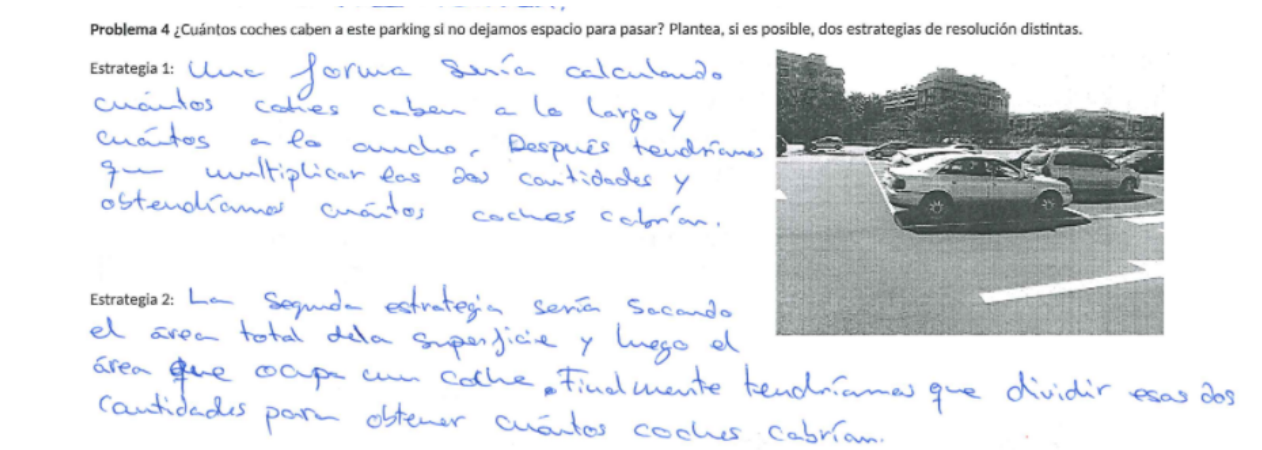 Problema 4 ¿Cuántos coches caben a este parking si no dejamos espacio para pasar? Plantea, si es posible, dos estrategias de resolución distintas.
Estrategia 1: Una forma sería calculando
cuántos coches caben a lo largo y
cuántos a lo ancho. Después tendríamos
que multiplicar las dos cantidades y
obtendríamos cuántos coches cabrían.
Estrategia 2: La segunda estrategia sería sacando
el área total dela superficie y luego el
área que ocupa un coche. Finalmente tendríamos que dividir esas dos
cantidades para obtener cuántos coches cabrían.